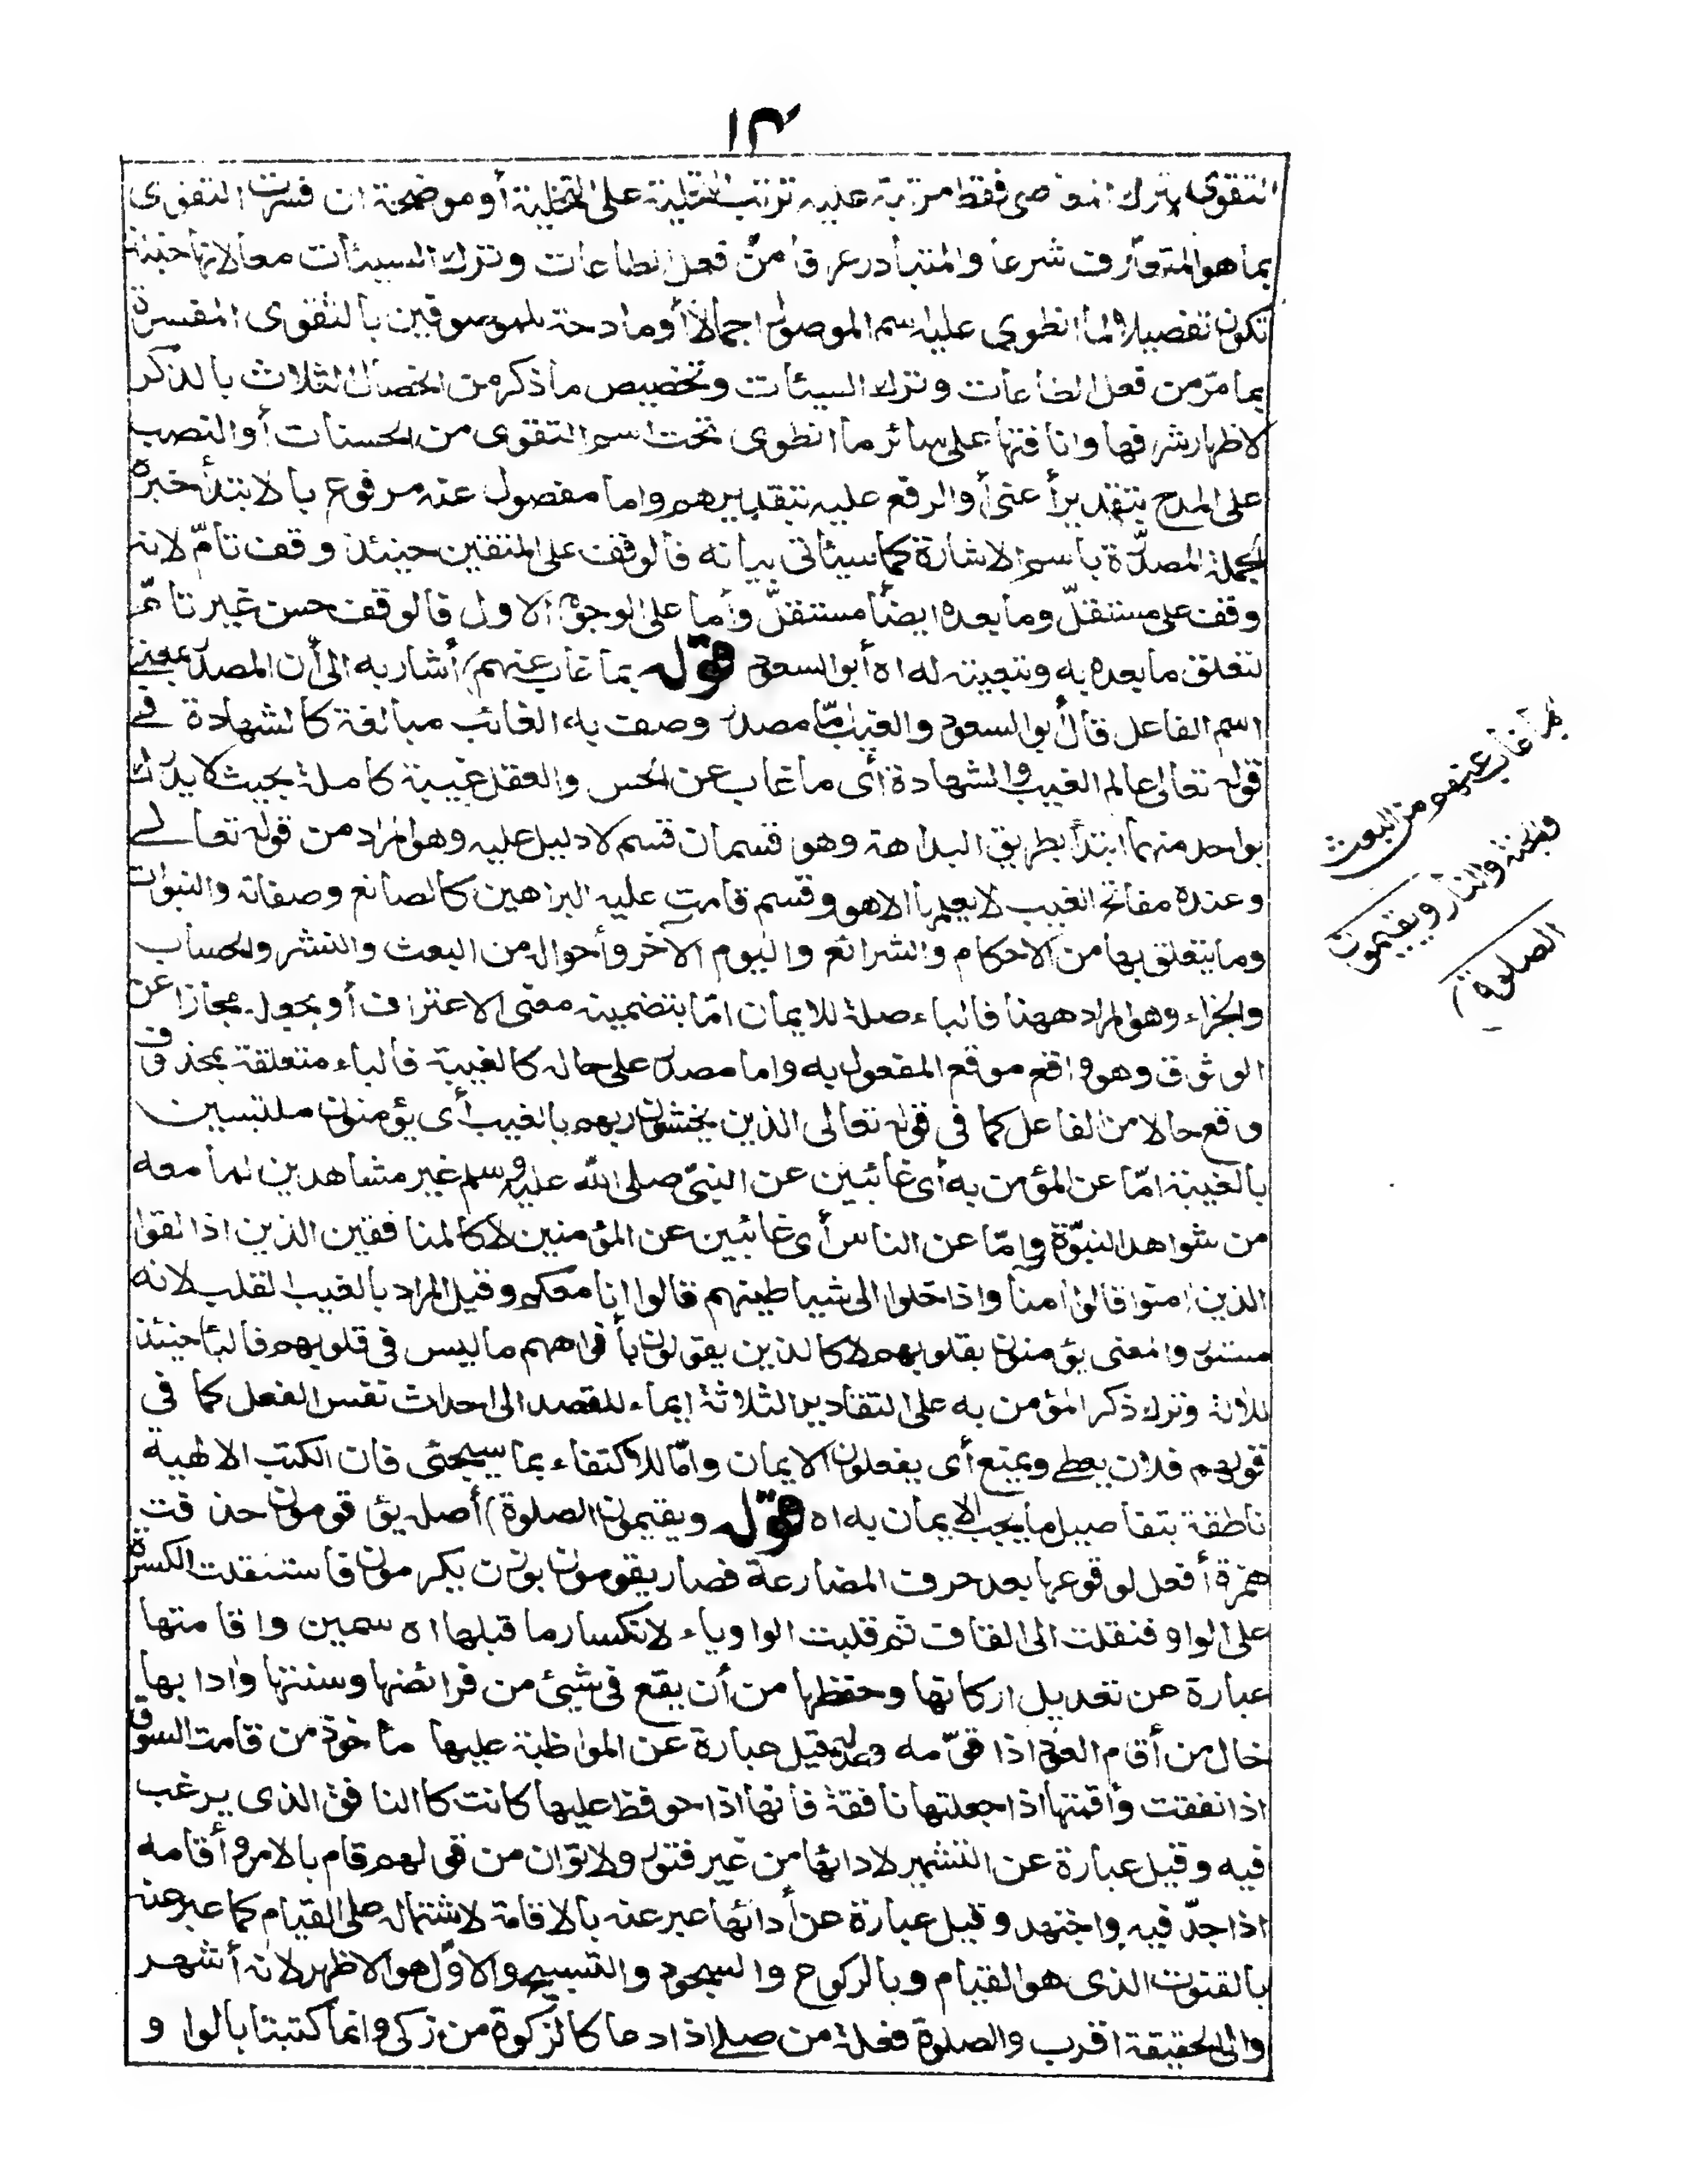 ١٣
التقوى بترك المعاصى فقط مرتبة عليه ترتب التحلية على التخلية أو موضحة ان فسرت التقوى
بما هو المتعارف شرعا والمتبادر عرفا من فعل الطاعات وترك السيئات معا لانها حينئذ
تكون تفصيلا لما انطوى عليه اسم الموصول اجمالا أو مادحة للموصوفين بالتقوى المفسرة
بما مرّ من فعل الطاعات وترك السيئات وتخصيص ما ذكر من الخصال الثلاث بالذكر
لاظهار شرفها وانافتها على سائر ما انطوى تحت اسم التقوى من الحسنات أو النصب
على المدح بتقدير أعنى أو الرفع عليه بتقدير هم واما مفصول عنه مرفوع بالابتدأ خبره
الجملة المصدّرة باسم الاشارة كما سيأتى بيانه فالوقف على المتقين حينئذ وقف تامّ لانه
وقف على مستقلّ وما بعده ايضا مستقلّ وأما على الوجوه الاول فالوقف حسن غير تامّ
لتعلق ما بعده به وتبعيته له اه أبو السعود قوله بما غاب عنهم) أشار به الى أن المصدر بمعنى
اسم الفاعل قال أبو السعود والغيب امّا مصدر وصف به الغائب مبالغة كالشهادة فى
قوله تعالى عالم الغيب والشهادة أى ما غاب عن الحس والعقل غيبة كاملة بحيث لا يدرك
بواحد منهما ابتدأ بطريق البداهة وهو قسمان قسم لا دليل عليه وهو المراد من قوله تعالى
وعنده مفاتح الغيب لا يعلمها الا هو وقسم قامت عليه البراهين كالصانع وصفاته والنبوات
وما يتعلق بها من الاحكام والشرائع واليوم الاخر وأحواله من البعث والنشر والحساب
والجزاء وهو المراد ههنا فالباء صلة للايمان امّا بتضمينه معنى الاعتراف أو بجعله مجازا عن
الوثوق وهو واقع موقع المفعول به واما مصدر على حاله كالغيبة فالباء متعلقة بمحذوف
وقع حالا من الفاعل كما فى قوله تعالى الذين يخشون ربهم بالغيب أى يؤمنون ملتبسين
بالغيبة امّا عن المؤمن به أى غائبين عن النبىّ صلى الله عليه وسلم غير مشاهدين لما معه
من شواهد النبوّة وامّا عن الناس أى غائبين عن المؤمنين لا كالمنافقين الذين اذا لقوا
الذين امنوا قالوا امنا واذا خلوا الى شياطينهم قالوا انا معكم وقيل المراد بالغيب القلب لانه
مستور والمعنى يؤمنون بقلوبهم لا كالذين يقولون بأفواههم ما ليس فى قلوبهم فالباء حينئذ
للالة وترك ذكر المؤمن به على التقادير الثلاثة ايماء للقصد الى احداث نفس الفعل كما فى
قولهم فلان يعطى ويمنع أى يفعلون الايمان وامّا للاكتفاء بما سيجئى فان الكتب الالهية
ناطقة بتفاصيل ما يجب الايمان به اه قوله ويقيمون الصلوة) أصله يؤقومون حذفت
همزة أفعل لوقوعها بعد حرف المضارعة فصار يقومون بوزن يكرمون فاستثقلت الكسرة
على الواو فنقلت الى القاف ثم قلبت الواو ياء لانكسار ما قبلها اه سمين واقامتها
عبارة عن تعديل اركانها وحفظها من أن يقع فى شيئ من فرائضها وسننها وادابها
خال من أقام العود اذا قوّمه وعدله وقيل عبارة عن المواظبة عليها مأخوذ من قامت السوق
اذا نفقت وأقمتها اذا جعلتها نافقة فانها اذا حوفظ عليها كانت كالنافق الذى يرغب
فيه وقيل عبارة عن التشهير لادائها من غير فتور ولا توان من قولهم قام بالامر وأقامه
اذا جدّ فيه واجتهد وقيل عبارة عن أدائها عبر عنه بالاقامة لاشتماله على القيام كما عبر عنه
بالقنوت الذى هو القيام وبالركوع والسجود والتسبيح والاوّل هو الاظهر لانه أشهر
والى الحقيقة اقرب والصلوة فعلة من صلى اذا دعا كالزكوة من زكى وانما كتبتا بالواو
بما غاب عنهم من البعث
والجنة والنار ويقيمون
الصلوة)